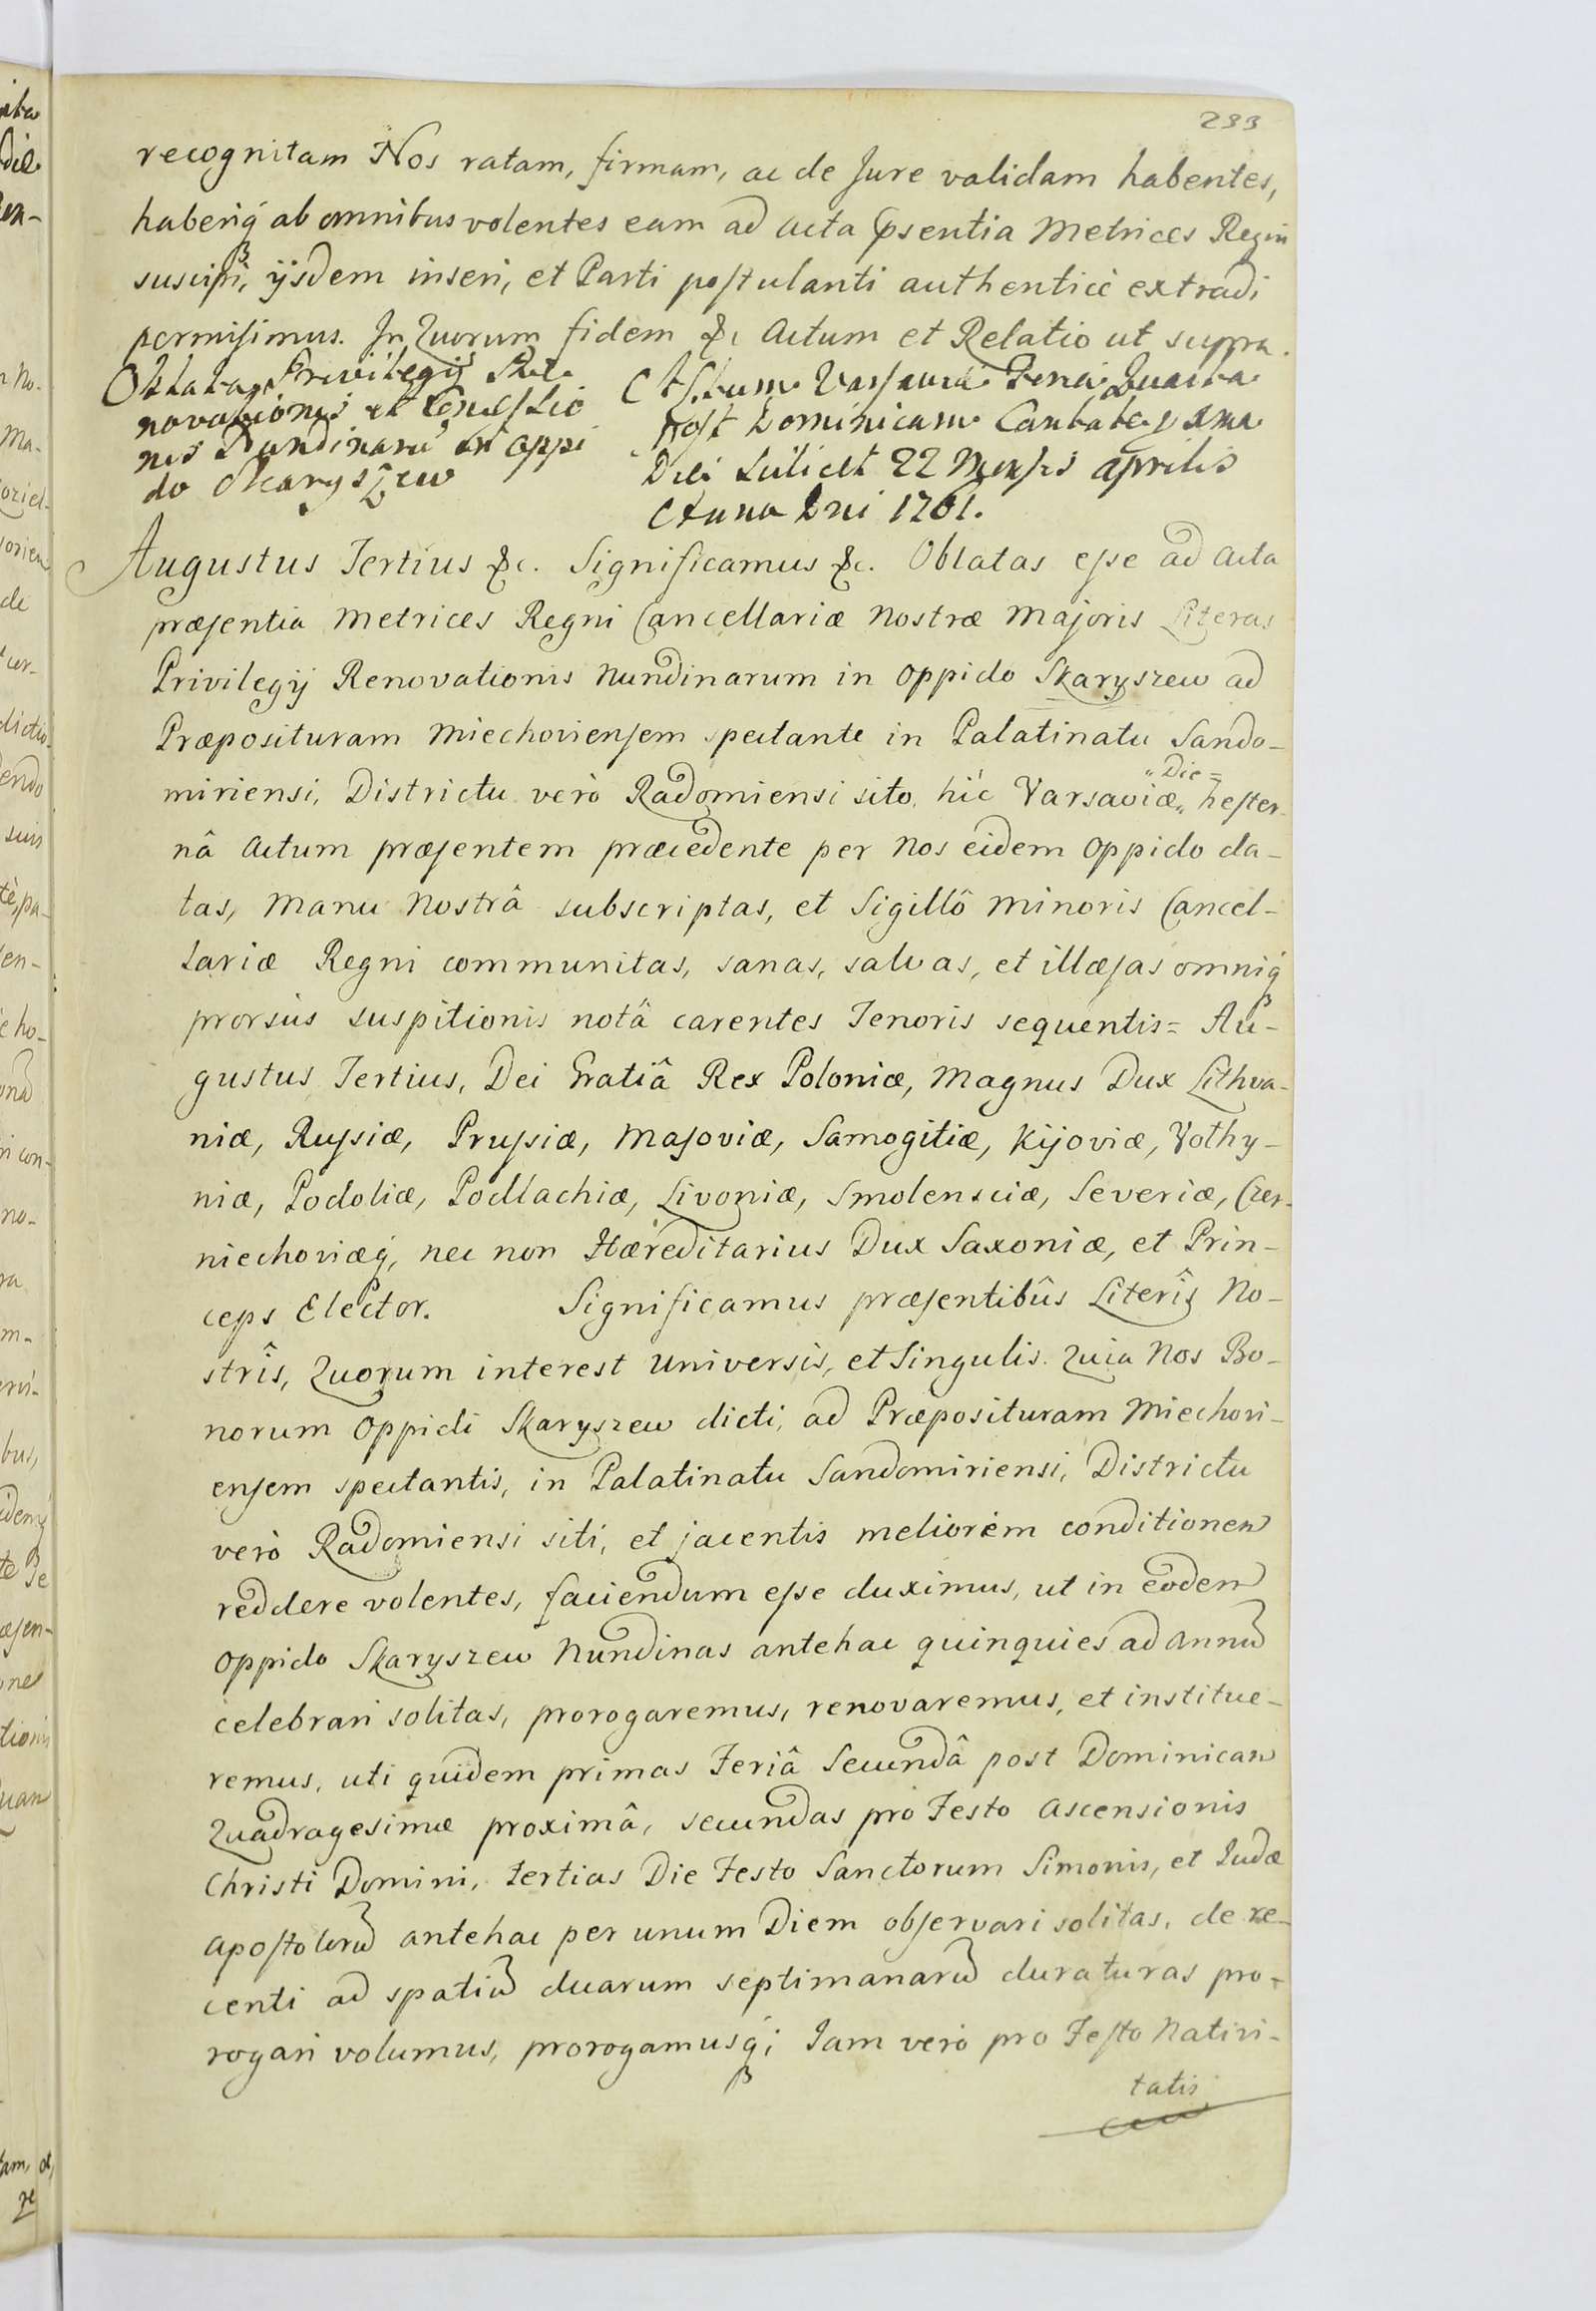 233
recognitam Nos ratam, firmam, ac de Jure validam habentes,
haberiq́ ab omnibus volentes eam ad acta psentia Metrices Regni
suscipi, ijsdem inseri, et Parti postulanti authenticè extradi
permisimus. In Quorum fidem &c Actum et Relatio ut supra.
Oblata Privilegij Re-
novationis et Concessio
nis Nundinarū in oppi
do Skaryszew
Actum Varsaviæ Feria Quarta
post Dominicam Cantate proxima
Die Scilicet 22 Mensis Aprilis
Anno Dni 1761.
Augustus Tertius &c. Significamus &c. Oblatas esse ad Acta
præsentia Metrices Regni Cancellariæ Nostræ Majoris Literas
Privilegij Renovationis Nundinarum in Oppido Skaryszew ad
Præposituram Miechoviensem spectante in Palatinatu Sando-
miriensi, Districtu verò Radomiensi sito, hìc Varsaviæ „Die= hester-
nâ Actum præsentem præcedente per Nos eidem Oppido da-
tas, Manu Nostrâ subscriptas, et Sigillô Minoris Cancel-
lariæ Regni communitas, sanas, salvas, et illæsas omniq́
prorsùs suspitionis notâ carentes Tenoris sequentis= Au-
gustus Tertius, Dei Gratiâ Rex Poloniæ, Magnus Dux Lithva-
niæ, Russiæ, Prussiæ, Masoviæ, Samogitiæ, Kijoviæ, Volhy-
niæ, Podoliæ, Podlachiæ, Livoniæ, Smolensciæ, Severiæ, Czer-
niechoviæq́, nec non Hæreditarius Dux Saxoniæ, et Prin-
ceps Elector. Significamus præsentibûs Literîs No-
strîs, Quorum interest Universis, et Singulis. Quia Nos Bo-
norum Oppidi Skaryszew dicti, ad Præposituram Miechovi-
ensem spectantis, in Palatinatu Sandomiriensi, Districtu
verò Radomiensi siti, et jacentis meliorem conditionem
reddere volentes, faciendum esse duximus, ut in eodem
Oppido Skaryszew Nundinas antehac quinquies ad Annū
celebrari solitas, prorogaremus, renovaremus, et institue-
remus, uti quidem primas Feriâ Secundâ post Dominicam
Quadragesimæ proximâ, secundas pro Festo Ascensionis
Christi Domini, tertias Die Festo Sanctorum Simonis, et Judæ
Apostolorū antehac per unum Diem observari solitas, de re-
centi ad spatiū duarum septimanarū duraturas pro-
rogari volumus, prorogamusq́; Jam verò pro Festo Nativi-
tatis